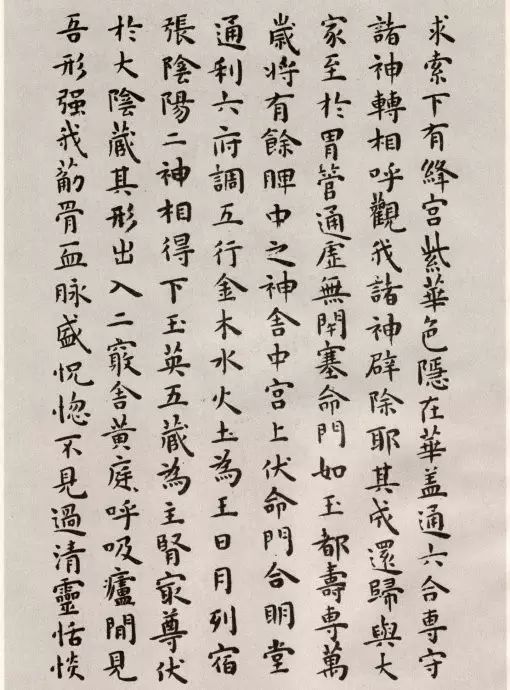 求索下有絳宮紫華色隱在華蓋通六合專守
諸神轉相呼觀我諸神辟除耶其成還歸與大
家至於胃管通虛無閉塞命門如玉都壽專萬
歲將有餘脾中之神舍中宮上伏命門合明堂
通利六府調五行金木水火土為王日月列宿
張陰陽二神相得下玉英五藏為主腎冣尊伏
於大陰藏其形出入二竅舍黃庭呼吸廬間見
吾形强我筋骨血脉盛怳惚不見過清靈恬惔